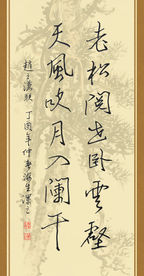 老松閱世臥雲壑
天風吹月入闌干
趙之謙聯 丁酉年仲春海生書